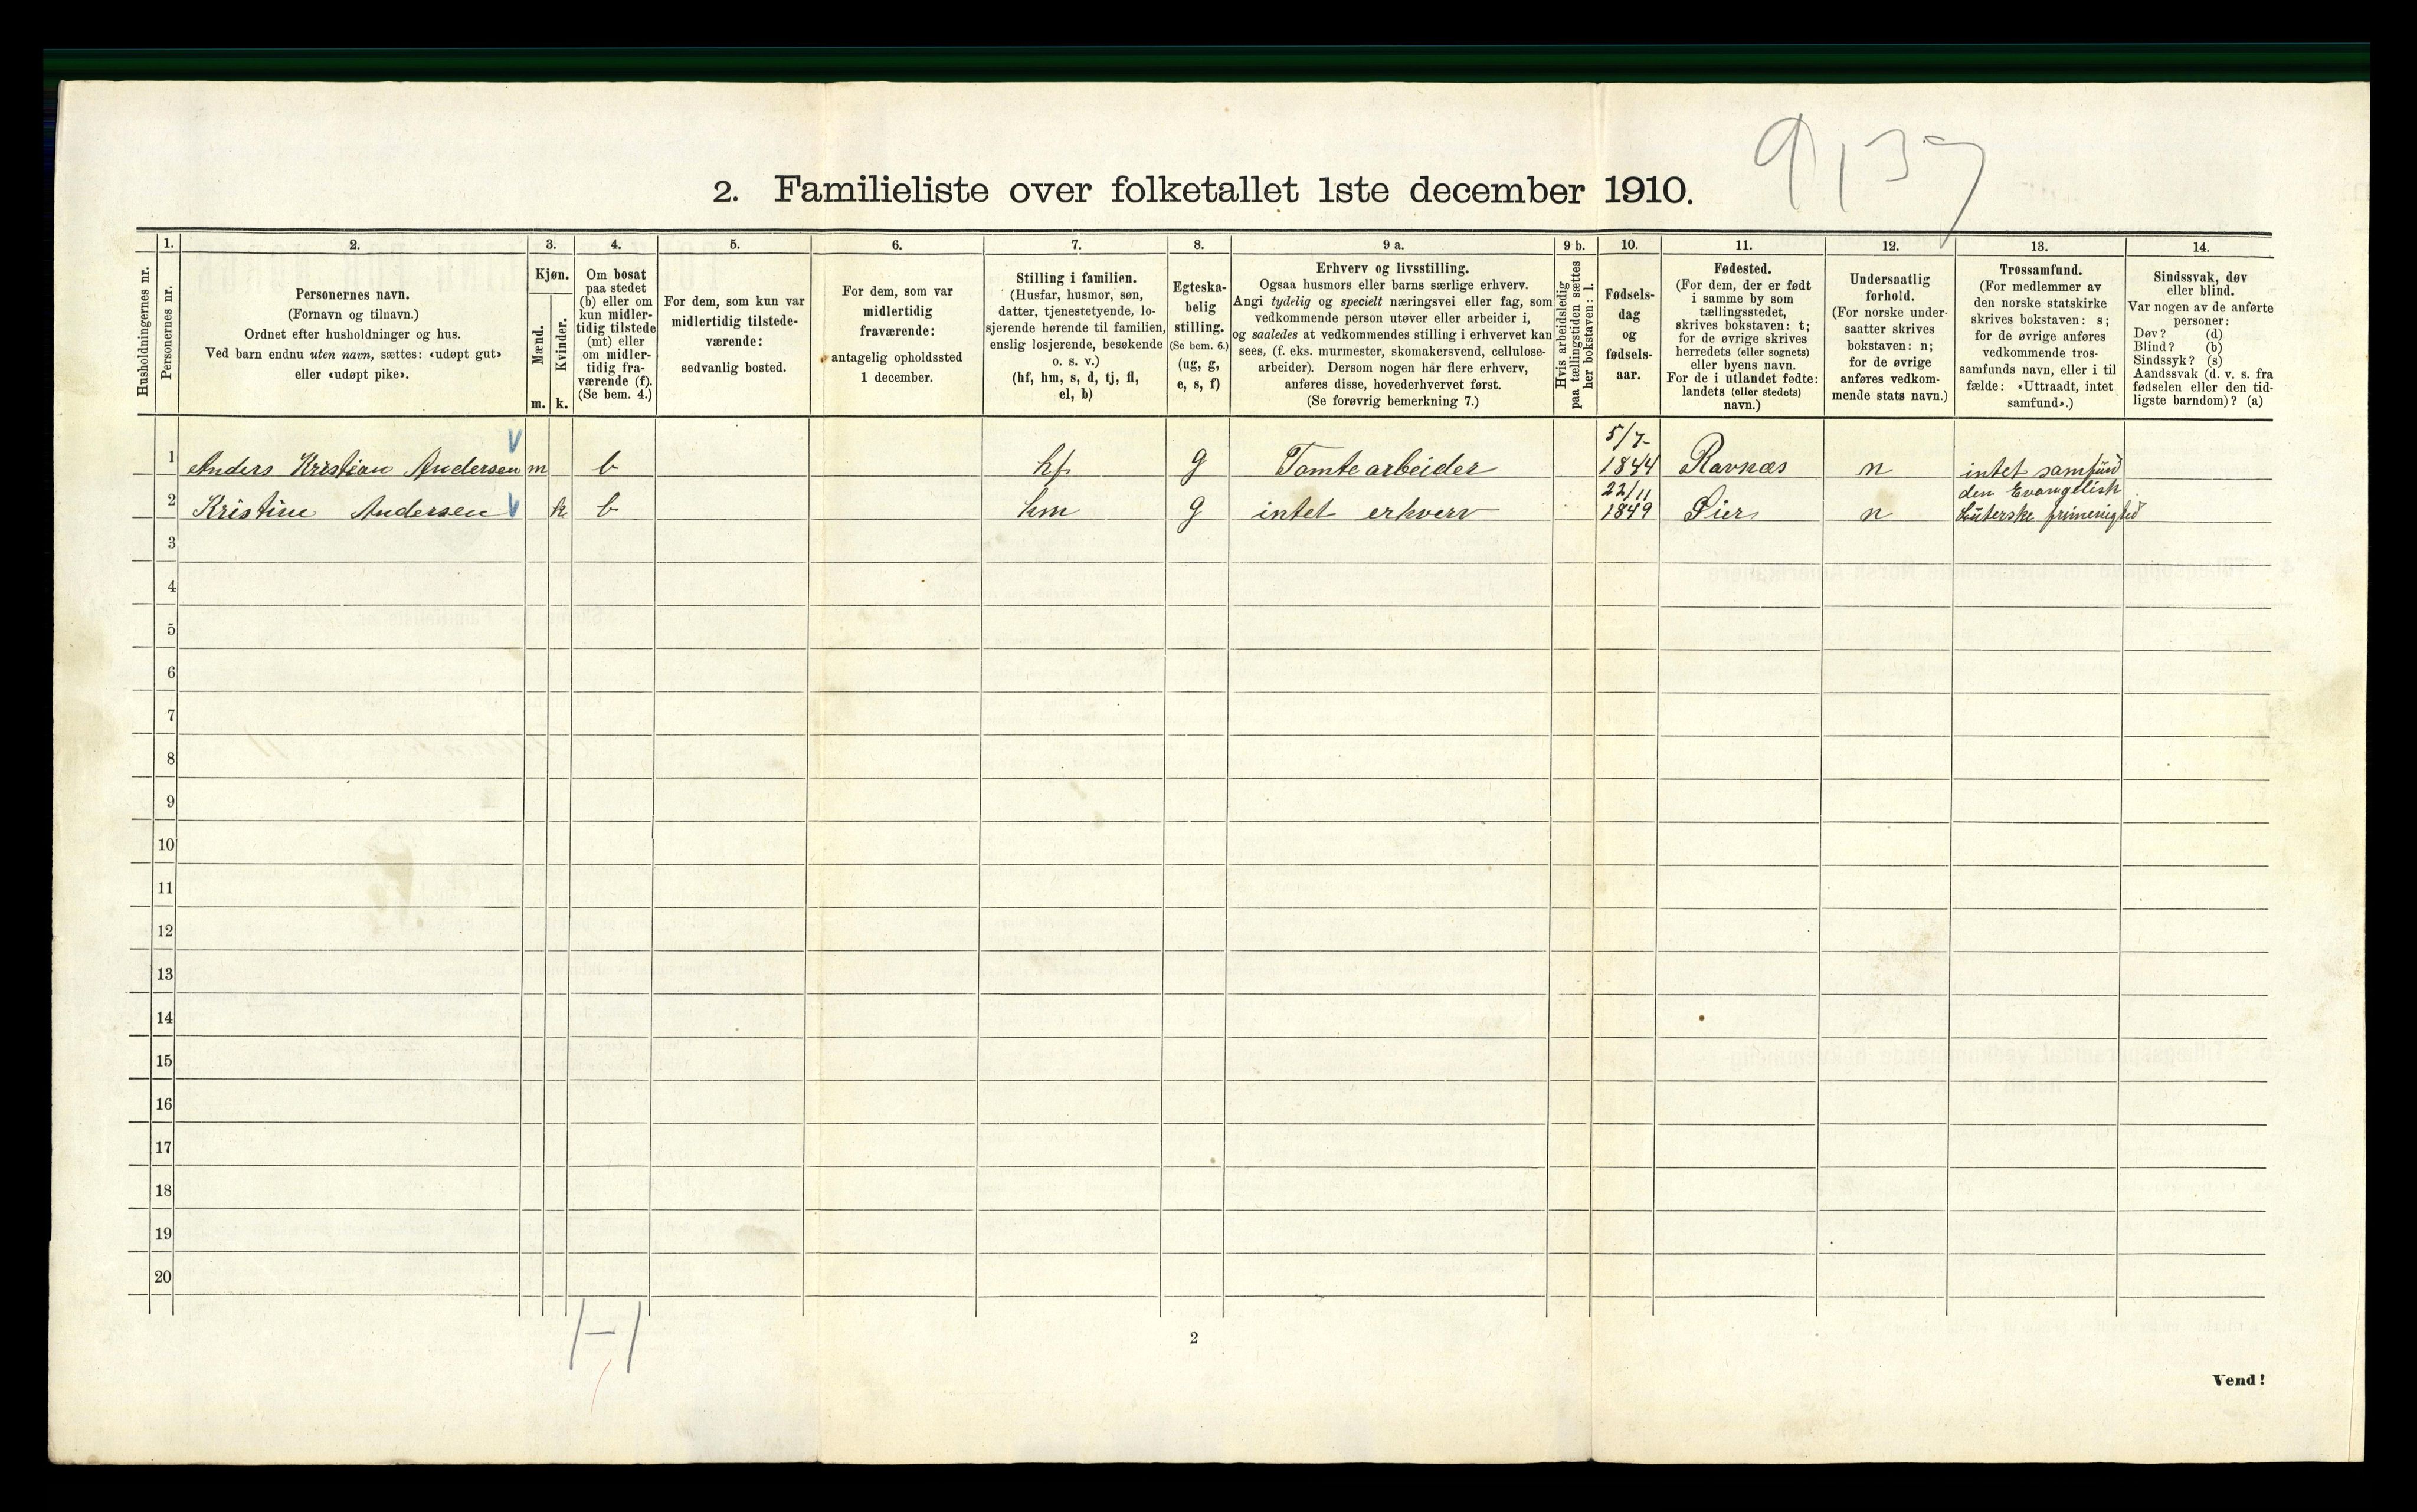 9137
2. Familieliste over folketallet 1ste december 1910.
Husholdningernes nr.
1.
Personernes nr.
2.
Personernes navn.
(Fornavn og tilnavn.)
Ordnet efter husholdninger og hus.
Ved barn endnu uten navn, sættes: «udøpt gut»
eller «udøpt pike».
3.
Kjøn.
Mænd.
m.
Kvinder.
k.
4.
Om bosat
paa stedet
(b) eller om
kun midler-
tidig tilstede
(mt) eller
om midler-
tidig fra-
værende (f).
(Se bem. 4.)
5.
For dem, som kun var
midlertidig tilstede-
værende:
sedvanlig bosted.
6.
For dem, som var
midlertidig
fraværende:
antagelig opholdssted
1 december.
7.
Stilling i familien.
(Husfar, husmor, søn,
datter, tjenestetyende, lo-
sjerende hørende til familien,
enslig losjerende, besøkende
o. s. v.)
(hf, hm, s, d, tj, fl,
el, b)
8.
Egteska-
belig
stilling.
(Se bem. 6.)
(ug, g,
e, s, f)
9 a.
Erhverv og livsstilling.
Ogsaa husmors eller barns særlige erhverv.
Angi tydelig og specielt næringsvei eller fag, som
vedkommende person utøver eller arbeider i,
og saaledes at vedkommendes stilling i erhvervet kan
sees, (f. eks. murmester, skomakersvend, cellulose-
arbeider). Dersom nogen har flere erhverv,
anføres disse, hovederhvervet først.
(Se forøvrig bemerkning 7.)
9 b.
Hvis arbeidsledig
paa tællingstiden sættes
her bokstaven: l.
10.
Fødsels-
dag
og
fødsels-
aar.
11.
Fødested.
(For dem, der er født
i samme by som
tællingsstedet,
skrives bokstaven: t;
for de øvrige skrives
herredets (eller sognets)
eller byens navn.
For de i utlandet fødte:
landets (eller stedets)
navn.)
12.
Undersaatlig
forhold.
(For norske under-
saatter skrives
bokstaven: n;
for de øvrige
anføres vedkom-
mende stats navn.)
13.
Trossamfund.
(For medlemmer av
den norske statskirke
skrives bokstaven: s;
for de øvrige anføres
vedkommende tros-
samfunds navn, eller i til
fælde: «Uttraadt, intet
samfund».)
14.
Sindssvak, døv
eller blind.
Var nogen av de anførte
personer:
Døv? (d)
Blind? (b)
Sindssyk? (s)
Aandssvak (d. v. s. fra
fødselen eller den tid-
ligste barndom)? (a)
1 Anders Kristian Andersen m b hf g Tomtearbeider 5/7- 1844 Ravnæs n intet samfund
2 Kristine Andersen k b hm g intet erhverv 22/11 1849 Lier n den Evangelisk Luterske frimenighed
3
4
5
6
7
8
9
10
11
12
13
14
15
16
17
18
19
20
1-1
2
Vend!